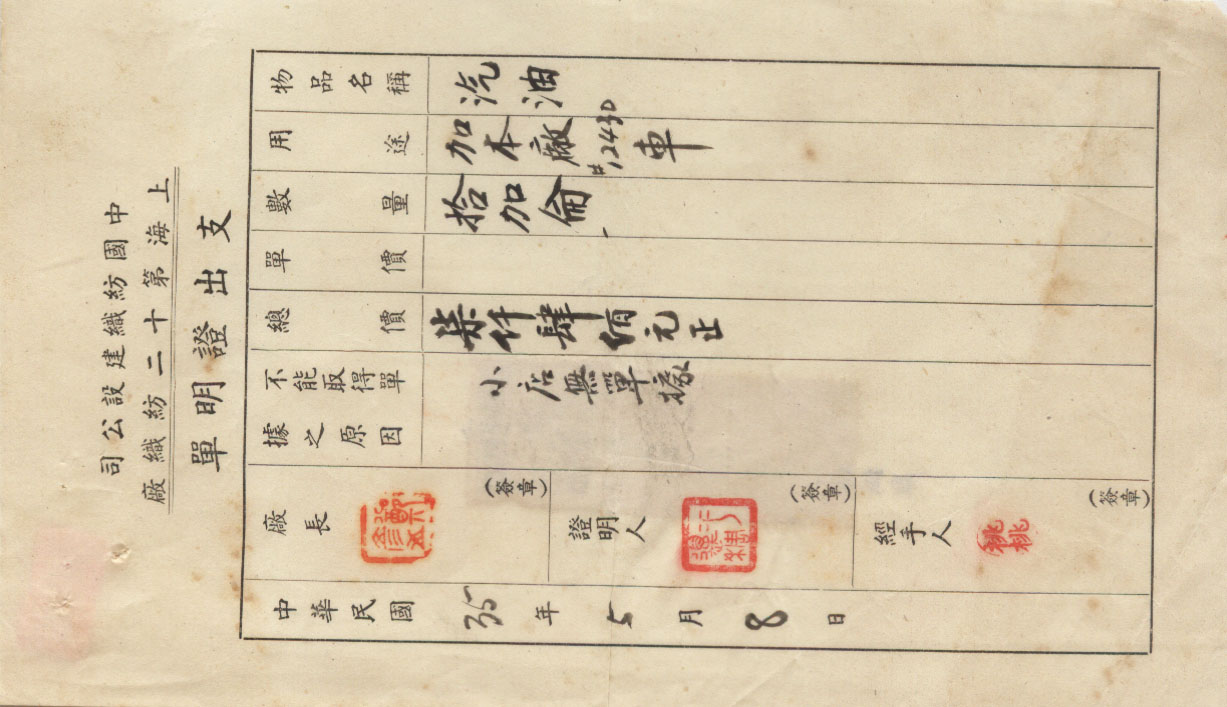 中國紡織建設公司
上海第十二紡織廠
支出證明單
物品名稱 汽油
用途 加本廠#12430車
數量 拾加侖
單價
總價 柒仟肆佰元正
不能取得單據之原因 小店無單據
廠長 (簽章)
證明人 (簽章)
經手人 (簽章)
中華民國35年5月8日